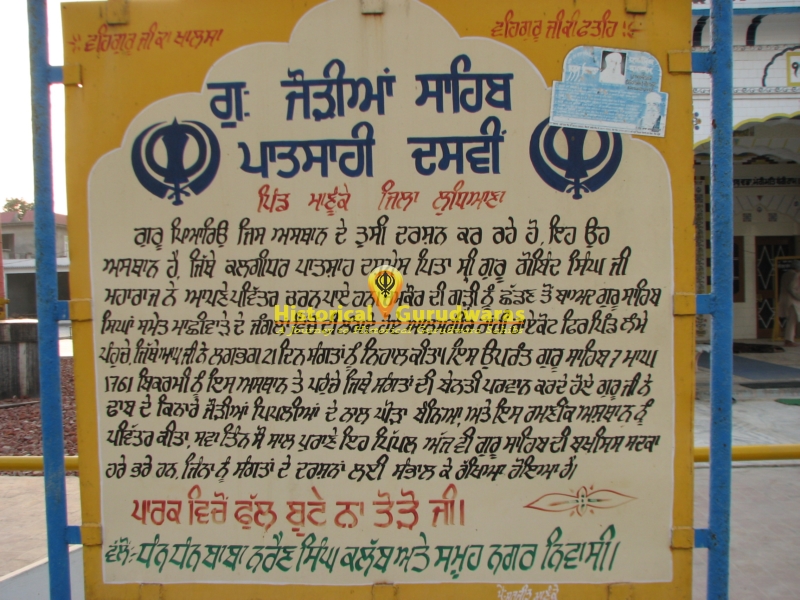 ਵਹਿਗੁਰੂ ਜੀ ਕਾ ਖਾਲਸਾ
ਵਹਿਗੁਰੂ ਜੀ ਕੀ ਫਤਿਹ
ਗੁ: ਜੌੜੀਆਂ ਸਾਹਿਬ
ਪਾਤਸਾਹੀ ਦਸਵੀਂ
ਪਿੰਡ ਮਾਣੂੰਕੇ ਜਿਲਾ ਲੁਧਿਆਣਾ
ਗੁਰੂ ਪਿਆਰਿਉ ਜਿਸ ਅਸਥਾਨ ਦੇ ਤੁਸੀ ਦਰਸ਼ਨ ਕਰ ਰਹੇ ਹੋ, ਇਹ ਉਹ
ਅਸਥਾਨ ਹੈ, ਜਿੱਥੇ ਕਲਗੀਧਰ ਪਾਤਸ਼ਾਹ ਦਸ਼ਮੇਸ਼ ਪਿਤਾ ਸ੍ਰੀ ਗੁਰੂ ਗੋਬਿੰਦ ਸਿੰਘ ਜੀ
ਮਹਾਰਾਜ ਨੇ ਆਪਣੇ ਪਵਿੱਤਰ ਚਰਨ ਪਾਏ ਹਨ। ਚਮਕੌਰ ਦੀ ਗੜੀ ਨੂੰ ਛੱਡਣ ਤੋਂ ਬਾਅਦ ਗੁਰੂ ਸਾਹਿਬ
ਸਿੰਘਾਂ ਸਮੇਤ ਮਾਛੀਵਾੜੇ ਦੇ ਜੰਗਲਾਂ ਵਿੱਚ ਰਾਏਕੋਟ ਫਿਰ ਪਿੰਡ ਲੰਮੇ
ਪਹੁੰਚੇ, ਜਿੱਥੇ ਆਪ ਜੀ ਨੇ ਲਗਭਗ 21 ਦਿਨ ਸੰਗਤਾਂ ਨੂੰ ਨਿਹਾਲ ਕੀਤਾ। ਇਸ ਉਪਰੰਤ ਗੁਰੂ ਸਾਹਿਬ 7 ਮਾਘ।
1761 ਬਿਕਰਮੀ ਨੂੰ ਇਸ ਅਸਥਾਨ ਤੇ ਪਹੁੰਚੇ ਜਿਥੇ ਸੰਗਤਾਂ ਦੀ ਬੇਨਤੀ ਪਰਵਾਨ ਕਰਦੇ ਹੋਏ ਗੁਰੂ ਜੀ ਨੇ
ਢਾਬ ਦੇ ਕਿਨਾਰੇ ਜੌੜੀਆਂ ਪਿੱਪਲੀਆਂ ਦੇ ਨਾਲ ਘੋੜਾ ਬੰਨਿਆ, ਅਤੇ ਇਸ ਰਮਣੀਕ ਅਸਥਾਨ ਨੂੰ
ਪਵਿੱਤਰ ਕੀਤਾ, ਸਵਾ ਤਿੰਨ ਸੌ ਸਾਲ ਪੁਰਾਣੇ ਇਹ ਪਿੱਪਲ ਅੱਜ ਵੀ ਗੁਰੂ ਸਾਹਿਬ ਦੀ ਬਖਸਿਸ ਸਦਕਾ
ਹਰੇ ਭਰੇ ਹਨ, ਜਿੰਨਾ ਨੂੰ ਸੰਗਤਾਂ ਦੇ ਦਰਸ਼ਨਾਂ ਲਈ ਸੰਭਾਲ ਕੇ ਰੱਖਿਆ ਹੋਇਆ ਹੈ।
ਪਾਰਕ ਵਿਚੋਂ ਫੁੱਲ ਬੂਟੇ ਨਾ ਤੋੜੋ ਜੀ।
ਵੱਲੋਂ:- ਧੰਨ ਧੰਨ ਬਾਬਾ ਨਰੈਣ ਸਿੰਘ ਕਲੱਬ ਅਤੇ ਸਮੂਹ ਨਗਰ ਨਿਵਾਸੀ।
Historical Gurudwaras